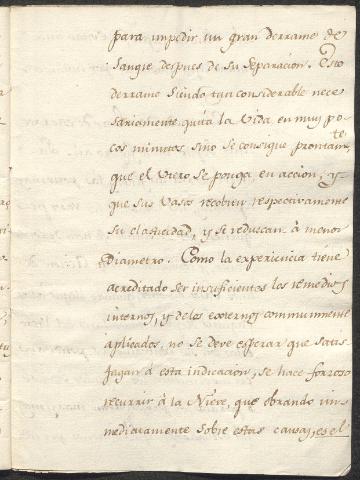 para impedir un gran derrame de
Sangre despues de su Separacion. Este
derrame Siendo tan considerable nece
sariamente quita la Vida en muy po-
cos minutos sino se consigue prontamte
que el Utero se ponga en accion, y
que sus Vasos recobren respectivamente
su elasticidad, y se reduscan à menor
Diametro. Como la experiencia tiene
acreditado ser insuficientes los remedios
internos, y delos externos communmente
aplicados, no se deve esperar que satis
fagan à esta indicacion, se hace forzoso
recurrir à la Nieve, que obrando in
mediatamente sobre estas causas, es el